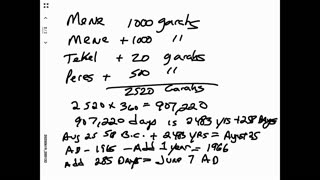 Mene 1000 garahs
Mene + 1000 "
Takel + 20 garahs
Peres + 500 "
2520 Garahs
2520 x 360 = 907,220
907,220 days is 2483 yrs + 258 Days
Aug 25 B.C. + 2483 yrs = August 25
AD - 1965 - Add 1 year = 1966
Add 285 Days = June 7 AD